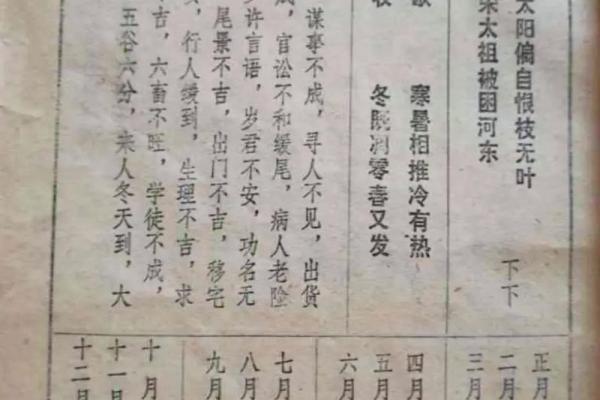 太阳偏自恨枝无叶
太祖被困河东
下下
寒暑相推冷有热
冬既凋零春又发
谋事不成，寻人不见，出货
，官讼不和缓尾，病人老险
许言语，岁君不安，功名无
尾景不吉，出门不吉，移宅
，行人缓到，生理不吉，求
不吉，六畜不旺，学徒不成，
五谷六分，来人冬天到，大
正月
二月
三月
四月
五月
六月
七月
八月
九月
十月
十一月
十二月